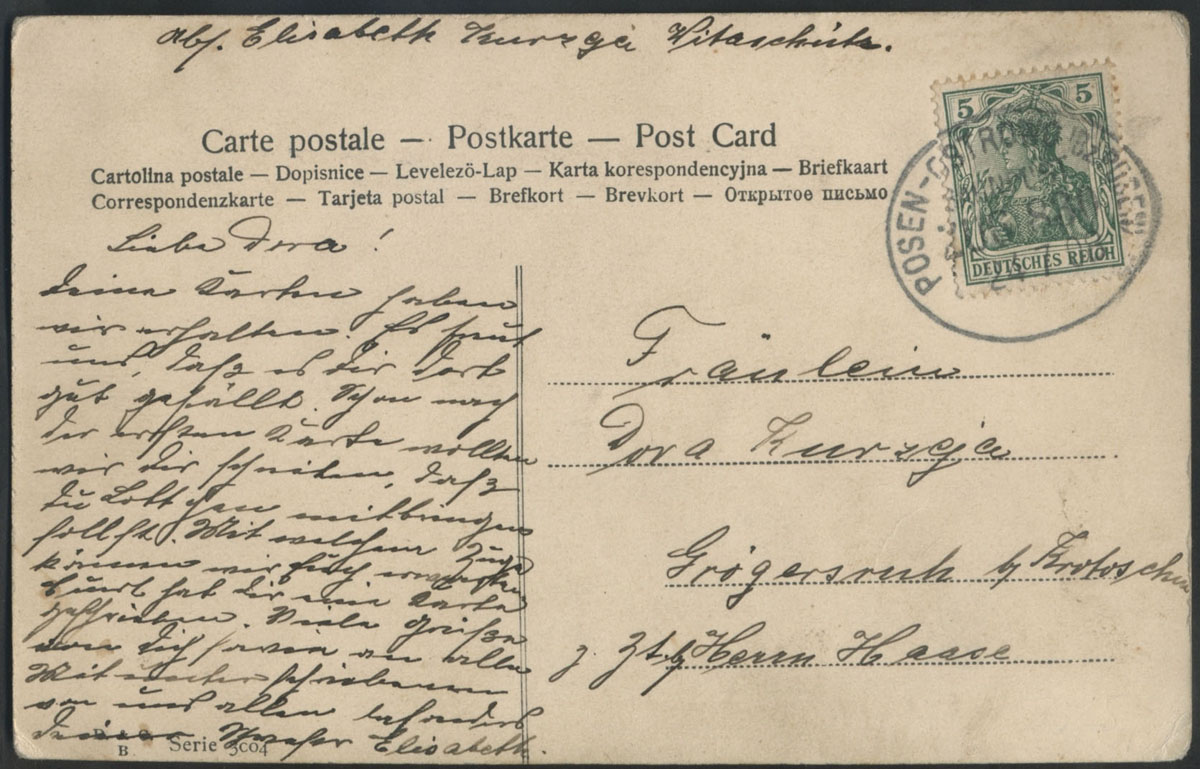 Abs. Elisabeth Kurzeja Witaschütz.
Carte postale — Postkarte — Post Card
Cartolina postale — Dopisnice — Levelezö-Lap — Karta korespondencyjna — Briefkaart
Correspondenzkarte — Tarjeta postal — Brefkort — Brevkort — Открытое письмо
5 5
DEUTSCHES REICH
POSEN-
Liebe Dora!
Deine Karten haben
wir erhalten. Es freut
uns, daß es Dir dort
gut gefällt. Schon nach
der ersten Karte wollten
wir Dir schreiben, daß
Du Lottchen mitbringen
sollst. Mit welchem Zuge
können wir Euch erwarten
hat Dir eine Karte
geschrieben. Viele Grüße
an Dich sowie an alle
Mitunterschriebenen
von uns allen besonders
Deiner Schwester Elisabeth.
Fräulein
Dora Kurzeja
Grögersruh b/ Krotoschin
z. Zt. b/ Herrn Haase
B. Serie 5004